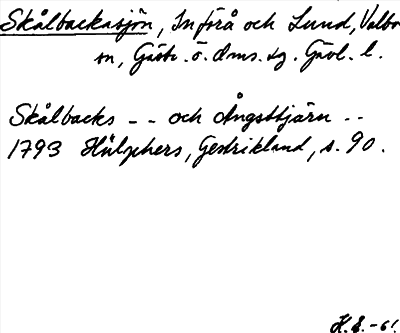 Skålbackasjön, Införå och Lund, Valbo
sn, Gästr. ö. dms. tg. Gävl. l.
Skålbacks - - och Ångsttjärn - -
1793 Hülphers, Gestrikland, s. 90.
H.S. -61